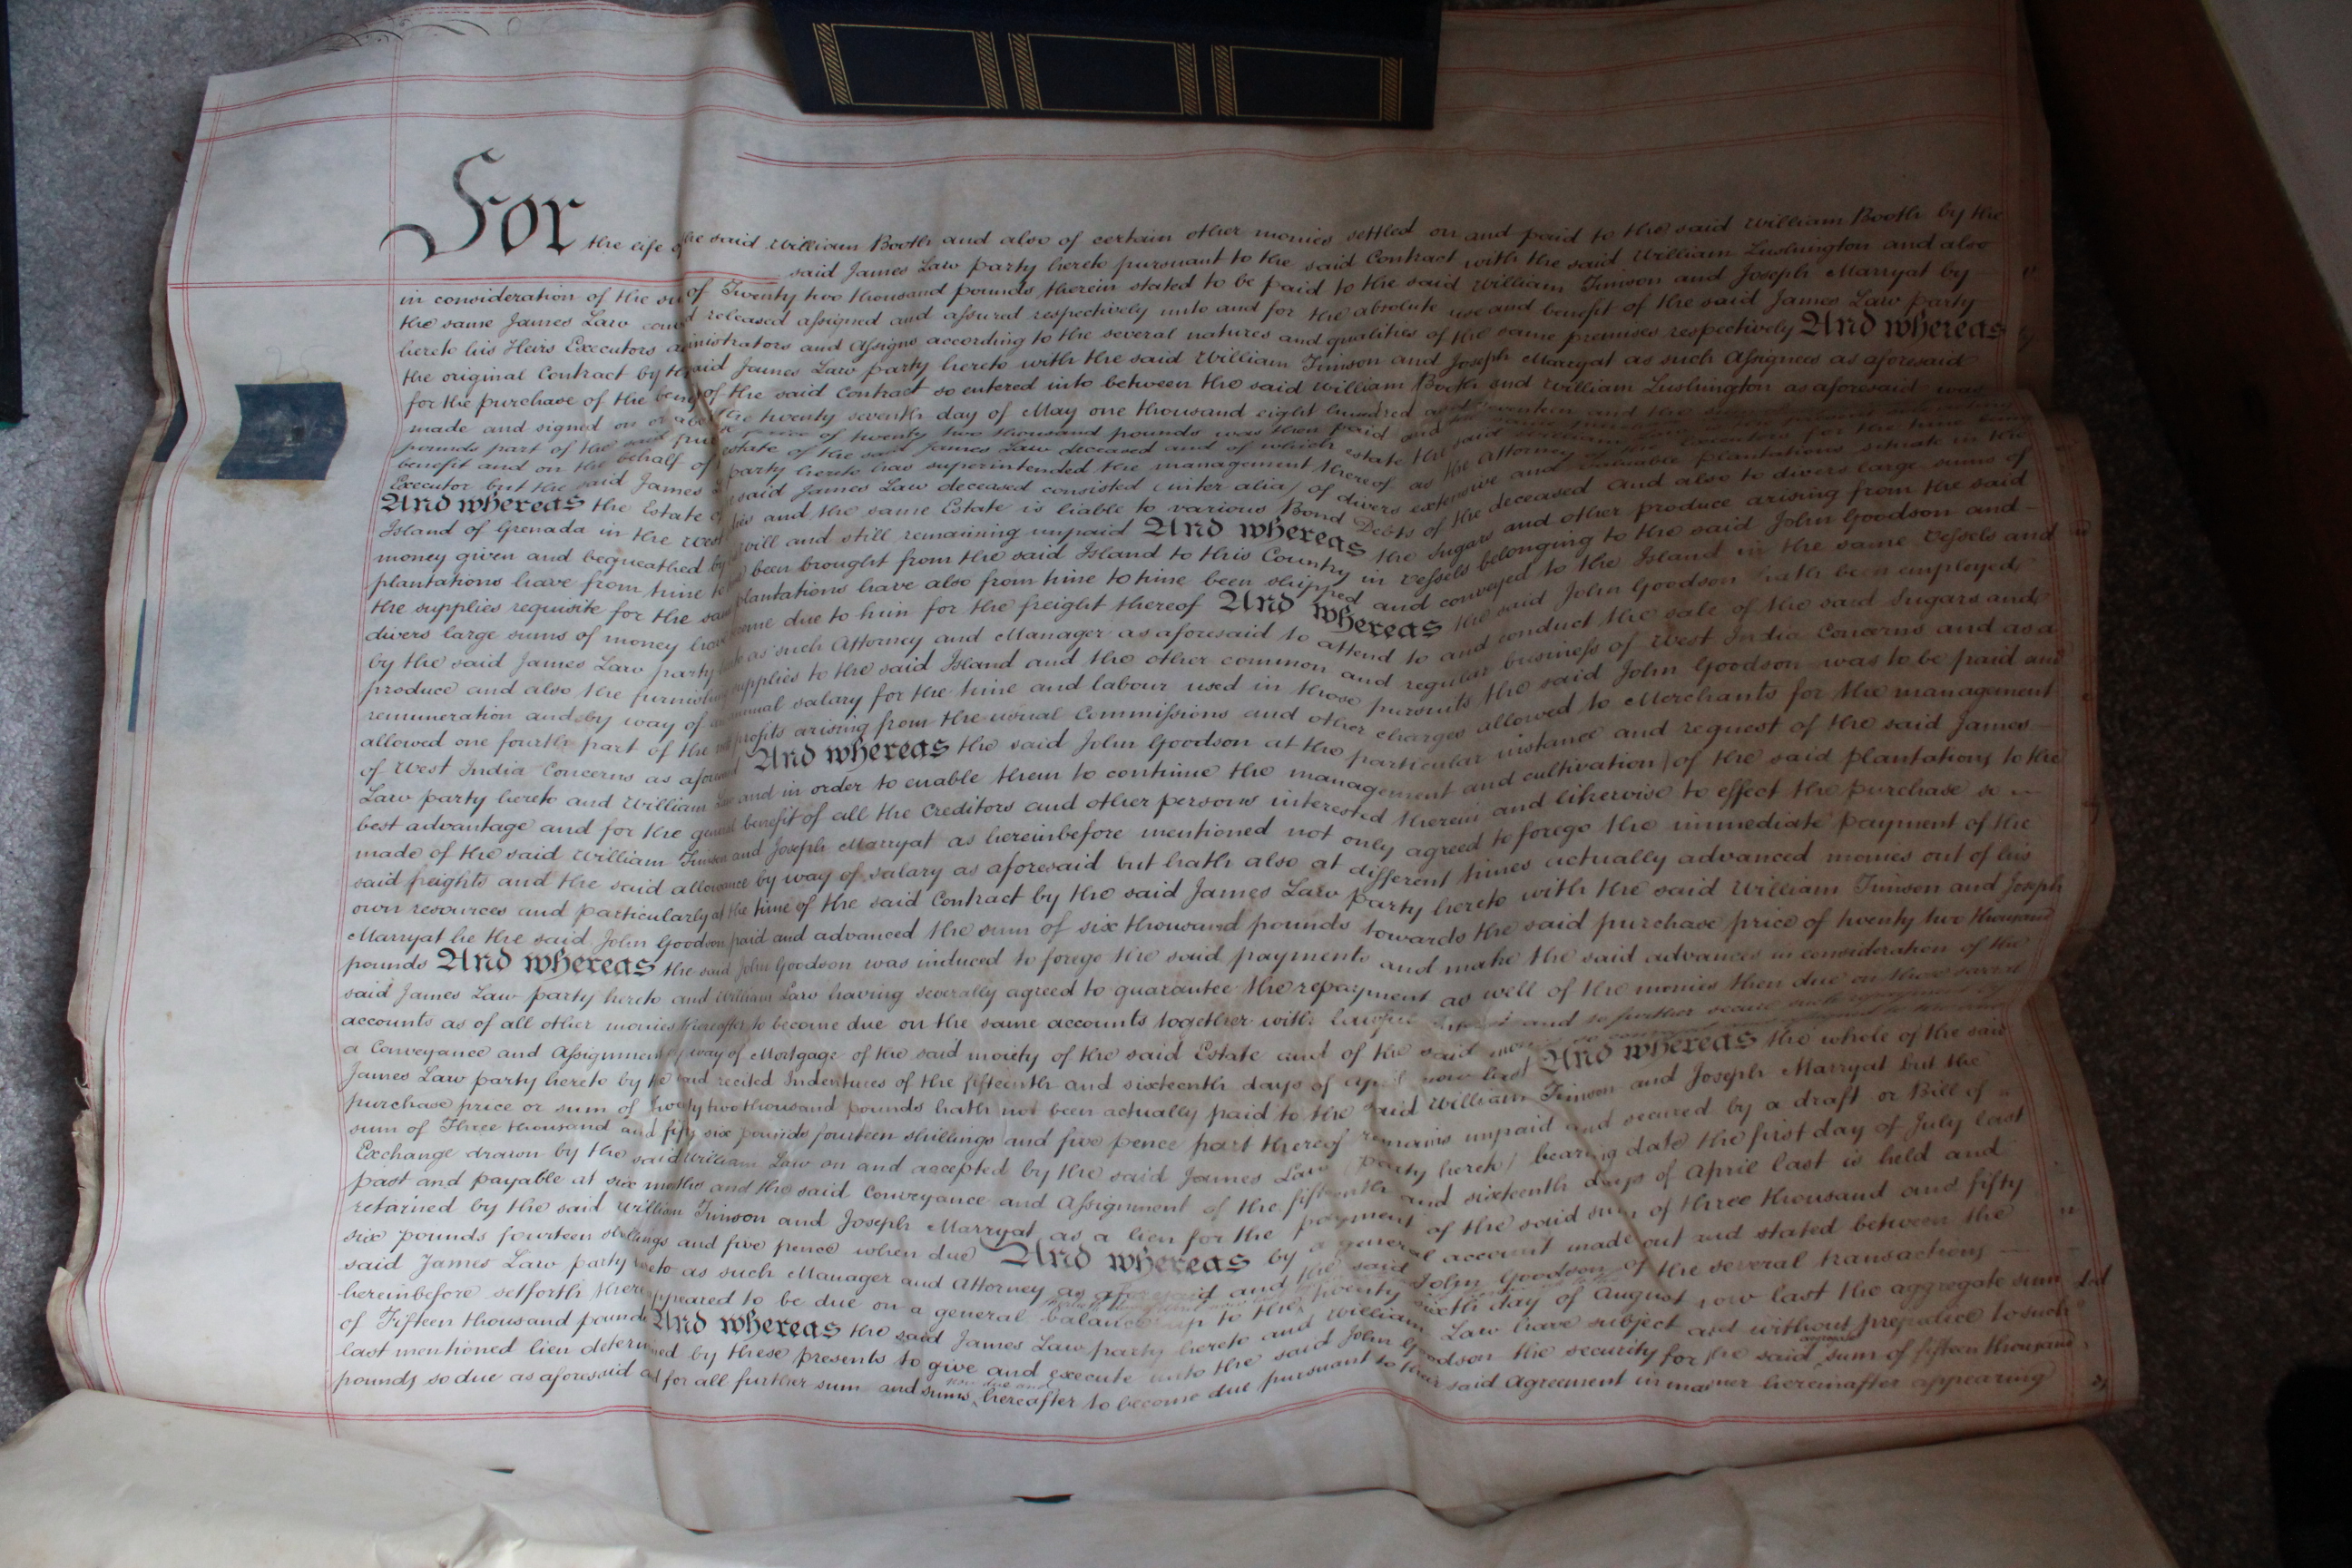 For the life of the said William Booth and also of certain other monies settled on and paid to the said William Booth by the
said James Law party hereto pursuant to the said Contract with the said William Lushington and also
in consideration of the of Twenty two thousand pounds therein stated to be paid to the said William Timson and Joseph Marryat by
the same James Law released assigned and assured respectively unto and for the absolute use and benefit of the said James Law party
hereto his Heirs Executors administrators and Assigns according to the several natures and qualities of the same premises respectively And whereas
the original Contract by the said James Law party hereto with the said William Timson and Joseph Marryat as such Assignees as aforesaid
for the purchase of the of the said Contract so entered into between the said William Booth and William Lushington as aforesaid was
made and signed on or the twenty seventh day of May one thousand eight hundred and seventeen and the
pounds part of the said of twenty two thousand pounds was then paid and
benefit and on the behalf of estate of the said James Law deceased and of which estate the said
Executor but the said James party hereto has superintended the management thereof as the Attorney of the Executors for the time being
And whereas the Estate said James Law deceased consisted (inter alia) of divers extensive and valuable plantations situate in the
Island of Grenada in the West and the same Estate is liable to various Bond Debts of the deceased and also to divers large sums of
money given and bequeathed by will and still remaining unpaid And whereas the Sugars and other produce arising from the said
plantations have from time to been brought from the said Island to this Country in Vessels belonging to the said John Goodson and
the supplies requisite for the said plantations have also from time to time been shipped and conveyed to the Island in the same Vessels and
divers large sums of money have due to him for the freight thereof And whereas the said John Goodson hath been employed
by the said James Law party as such Attorney and Manager as aforesaid to attend to and conduct the sale of the said Sugars and
produce and also the furnishing supplies to the said Island and the other common and regular business of West India Concerns and as a
remuneration and by way of annual salary for the time and labour used in those pursuits the said John Goodson was to be paid and
allowed one fourth part of the profits arising from the usual Commissions and other charges allowed to Merchants for the management
of West India Concerns as aforesaid And whereas the said John Goodson at the particular instance and request of the said James
Law party hereto and William Law and in order to enable them to continue the management and cultivation of the said plantations to the
best advantage and for the general benefit of all the Creditors and other persons interested therein and likewise to effect the purchase so
made of the said William Timson and Joseph Marryat as hereinbefore mentioned not only agreed to forego the immediate payment of the
said freights and the said allowance by way of salary as aforesaid but hath also at different times actually advanced monies out of his
own resources and particularly at the time of the said Contract by the said James Law party hereto with the said William Timson and Joseph
Marryat he the said John Goodson paid and advanced the sum of six thousand pounds towards the said purchase price of twenty two thousand
pounds And whereas the said John Goodson was induced to forego the said payments and make the said advances in consideration of the
said James Law party hereto and William Law having severally agreed to guarantee the repayment as well of the monies then due on those several
accounts as of all other monies thereafter to become due on the same accounts together with lawful and to further secure such
a Conveyance and Assignment by way of Mortgage of the said moiety of the said Estate and of the said
James Law party hereto by the said recited Indentures of the fifteenth and sixteenth days of April now last And whereas the whole of the said
purchase price or sum of twenty two thousand pounds hath not been actually paid to the said William Timson and Joseph Marryat but the
sum of Three thousand and fifty six pounds fourteen shillings and five pence part thereof remains unpaid and secured by a draft or Bill of
Exchange drawn by the said William Law on and accepted by the said James Law (party hereto) bearing date the first day of July last
past and payable at six months and the said Conveyance and Assignment of the fifteenth and sixteenth days of April last is held and
retained by the said William Timson and Joseph Marryat as a lien for the payment of the said sum of three thousand and fifty
six pounds fourteen shillings and five pence when due And whereas by a general account made out and stated between the
said James Law party hereto as such Manager and Attorney as aforesaid and the said John Goodson of the several transactions
hereinbefore setforth there appeared to be due on a general balance up to the twenty sixth day of August now last the aggregate sum
of Fifteen thousand pounds And whereas the said James Law party hereto and William Law have subject and without prejudice to such
last mentioned lien determined by these presents to give and execute unto the said John Goodson the security for the said aggregate sum of fifteen thousand
pounds so due as aforesaid and for all further sum and sums now due and hereafter to become due pursuant to their said Agreement in manner hereinafter appearing